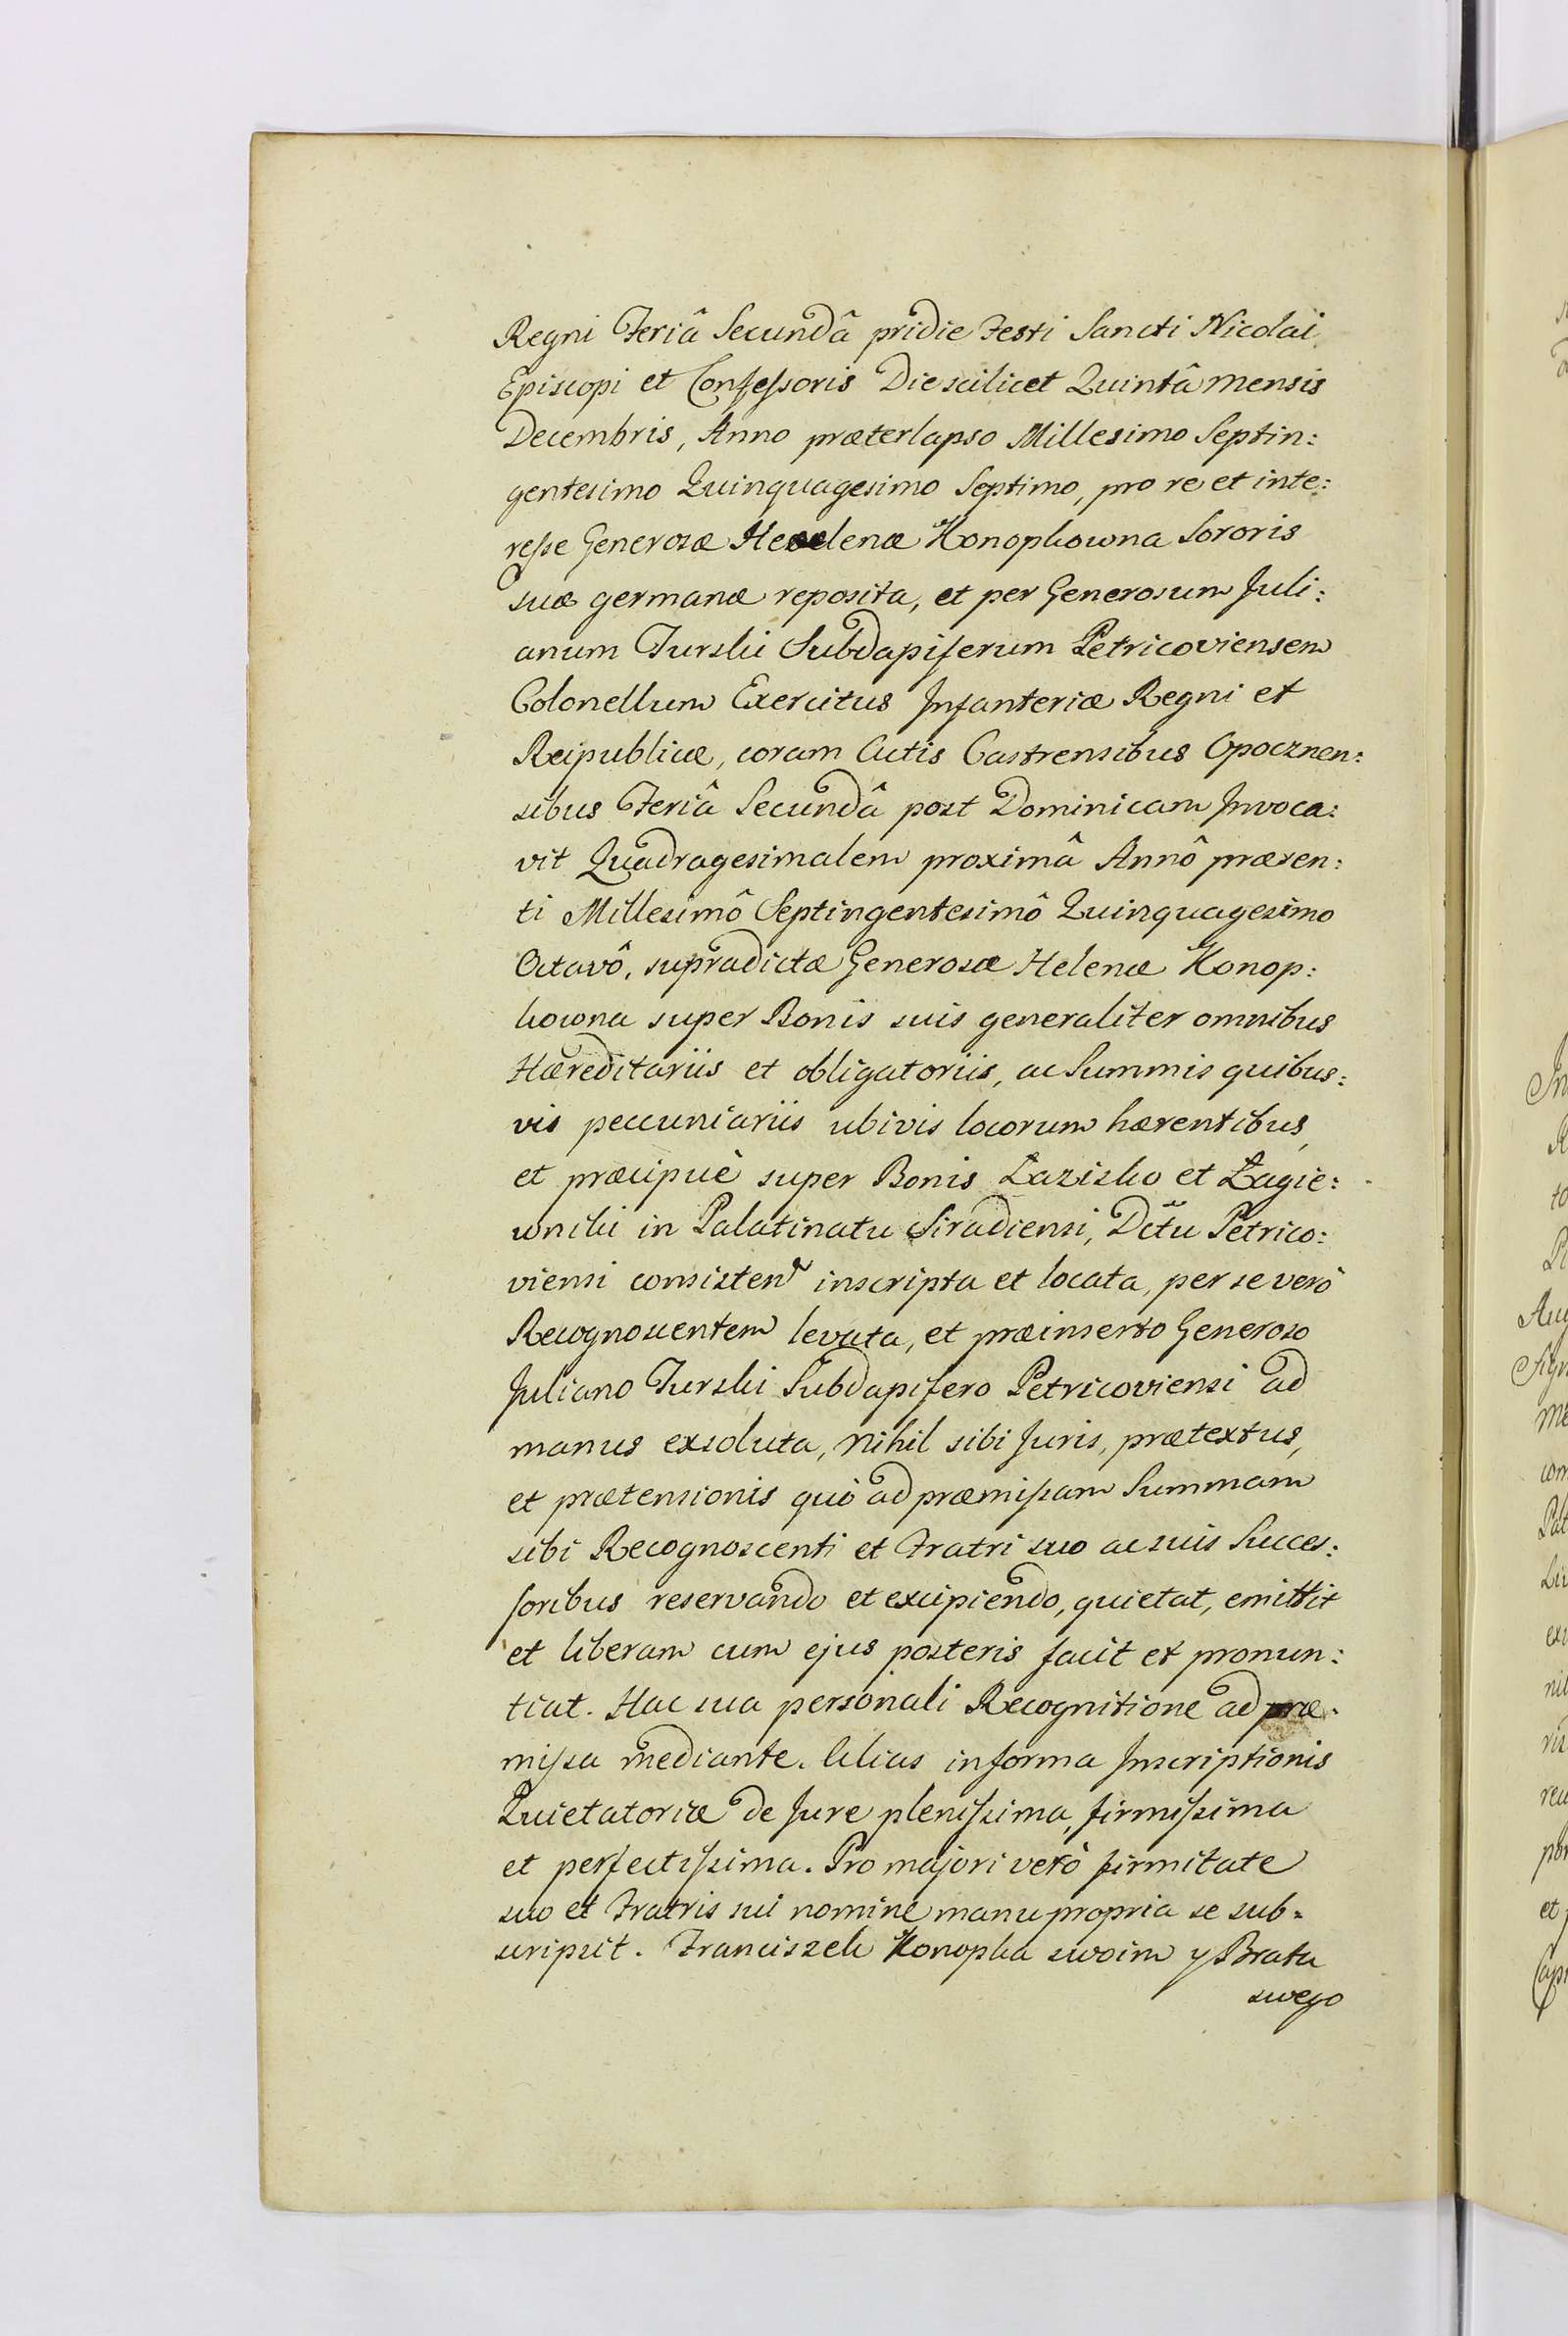 Regni Feriâ Secundâ pridie Festi Sancti Nicolai
Episcopi et Confessoris Die scilicet Quintâ mensis
Decembris, Anno præterlapso Millesimo Septin:
gentesimo Quinquagesimo Septimo, pro re et inte:
resse Generosæ Helenæ Konopkowna Sororis
suæ germanæ reposita, et per Generosum Juli:
anum Turski Subdapiferum Petricoviensem
Colonellum Exercitus Infanteriæ Regni et
Reipublicæ, coram Actis Castrensibus Opocznen:
sibus Feriâ Secundâ post Dominicam Invoca:
vit Quadragesimalem proximâ Annô præsen:
ti Millesimô Septingentesimô Quinquagesimo
Octavô, supradictæ Generosæ Helenæ Konop:
kowna super Bonis suis generaliter omnibus
Hæreditariis et obligatoriis, ac Summis quibus:
vis peccuniariis ubivis locorum hærentibus,
et præcipuè super Bonis Łazisko et Łagie:
wniki in Palatinatu Siradiensi, Dctu Petrico:
viensi consisten inscripta et locata, per se verò
Recognoscentem levata, et præinserto Generoso
Juliano Turski Subdapifero Petricoviensi ad
manus exsoluta, nihil sibi Juris, prætextus,
et prætensionis quò ad præmissam Summam
sibi Recognoscenti et Fratri suo ac suis Succes:
soribus reservando et excipiendo, quietat, emittit
et liberam cum ejus posteris facit et pronun:
tiat. Hac sua personali Recognitione ad præ:
missa mediante. Alias in forma Inscriptionis
Quietatoriæ de Jure plenissima, firmissima
et perfectissima. Pro majori verò firmitate
suo et Fratris sui nomine manu propria se sub:
scripsit. Franciszek Konopka swoim y Brata
swego